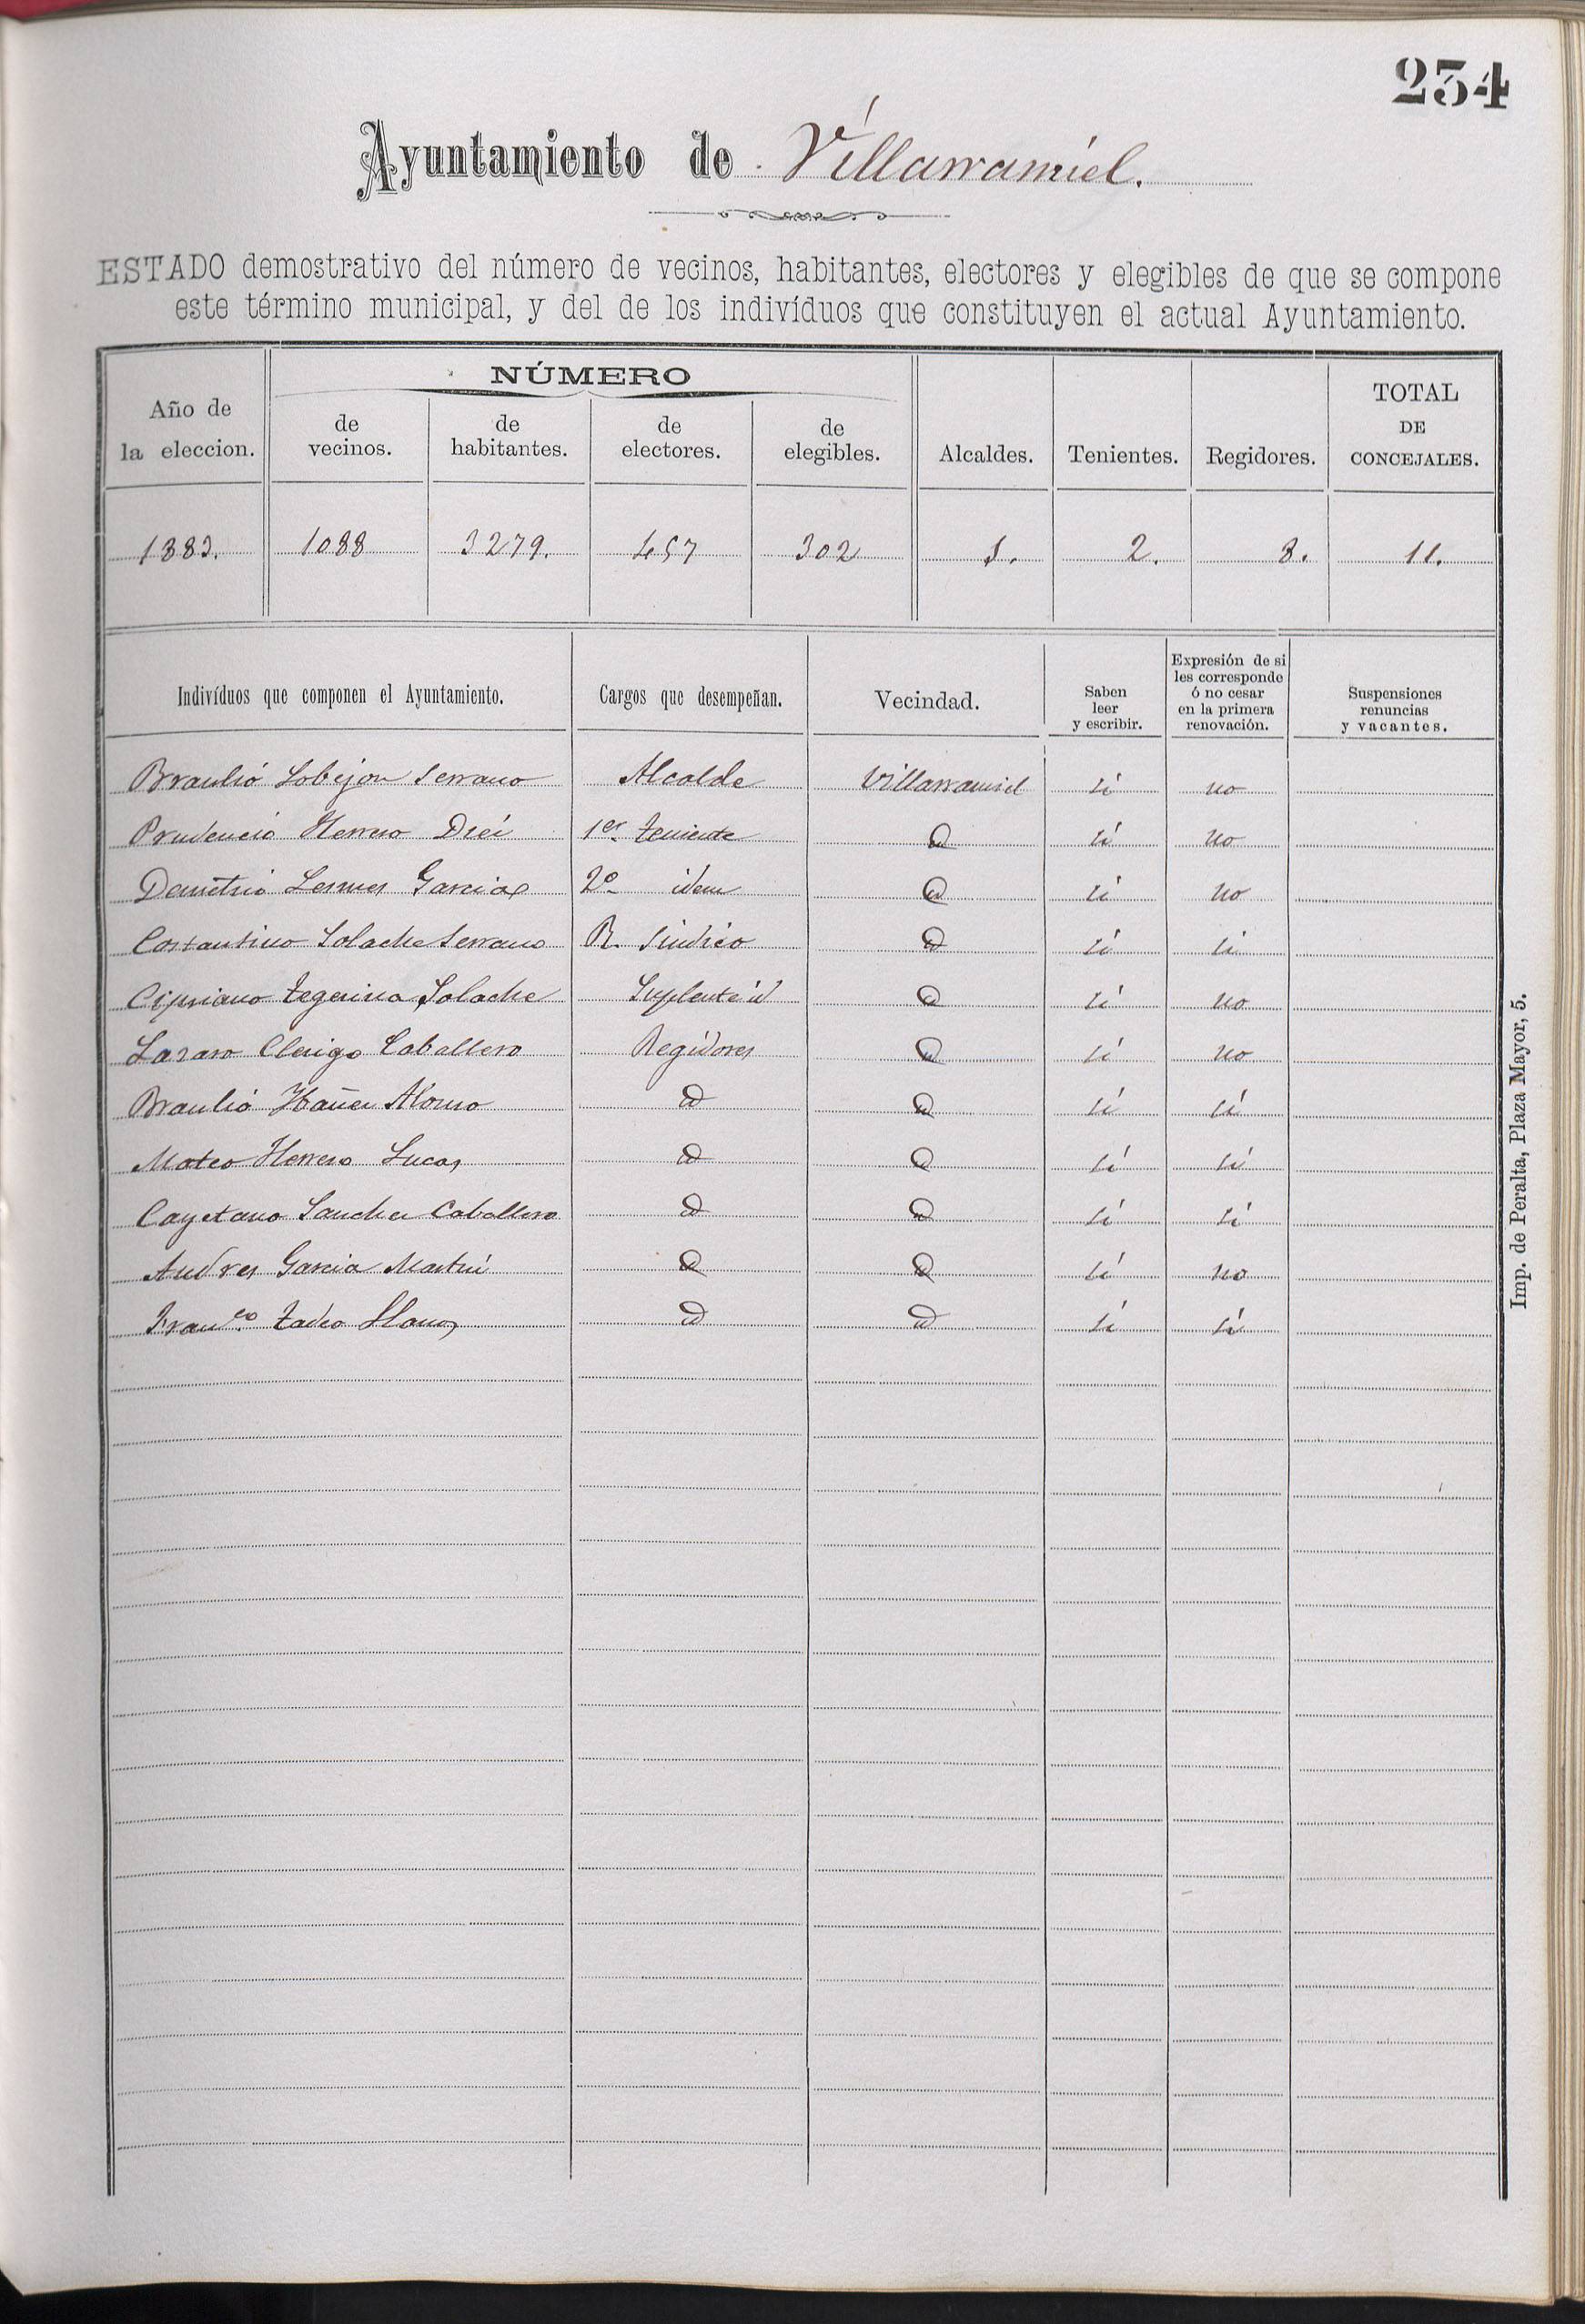 234
Ayuntamiento de Villarramiel.
ESTADO demostrativo del número de vecinos, habitantes, electores y elegibles de que se compone
este término municipal, y del de los indivíduos que constituyen el actual Ayuntamiento.
Año de la eleccion. NÚMERO de vecinos. de habitantes. de electores. de elegibles. Alcaldes. Tenientes. Regidores. TOTAL DE CONCEJALES.
1883. 1088 3279. 457 302 1. 2. 8. 11.
Indivíduos que componen el Ayuntamiento. Cargos que desempeñan. Vecindad. Saben leer y escribir. Expresión de si les corresponde ó no cesar en la primera renovación. Suspensiones renuncias y vacantes.
Braulió Lobejon Serrano Alcalde Villarramiel si no
Prudencio Herrero Diei 1er teniente id si no
Demetrio Lesmes Garcia 2º idem id si no
Costantino Solache Serrano R. Sindico id si si
Cipriano Tegerina Solache Suplente id id si no
Lazaro Clerigo Caballero Regidores id si no
Braulió Ibañez Alonso id id si si
Mateo Herrero Lucas id id si si
Cayetano Sanchez Caballero id id si si
Andres Garcia Martin id id si no
Franco Tadeo Llanos id id si si
Imp. de Peralta, Plaza Mayor, 5.